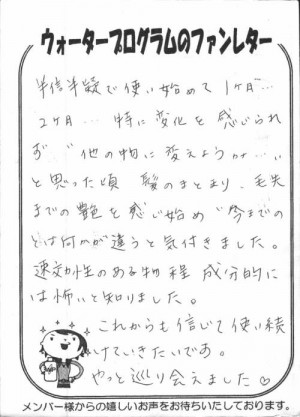 ウォータープログラムのファンレター
半信半疑で使い始めて1ヶ月…
2ヶ月… 特に変化を感じられ
ず“他の物に変えようか…”
と思った頃 髪のまとまり、毛先
までの艶を感じ始め“今までの
とは何かが違うと気付きました。
速効性のある物程 成分的に
は怖いと知りました。
これからも信じて使い続
けていきたいです。
やっと巡り会えました♡
メンバー様からの嬉しいお声をお待ちいたしております。